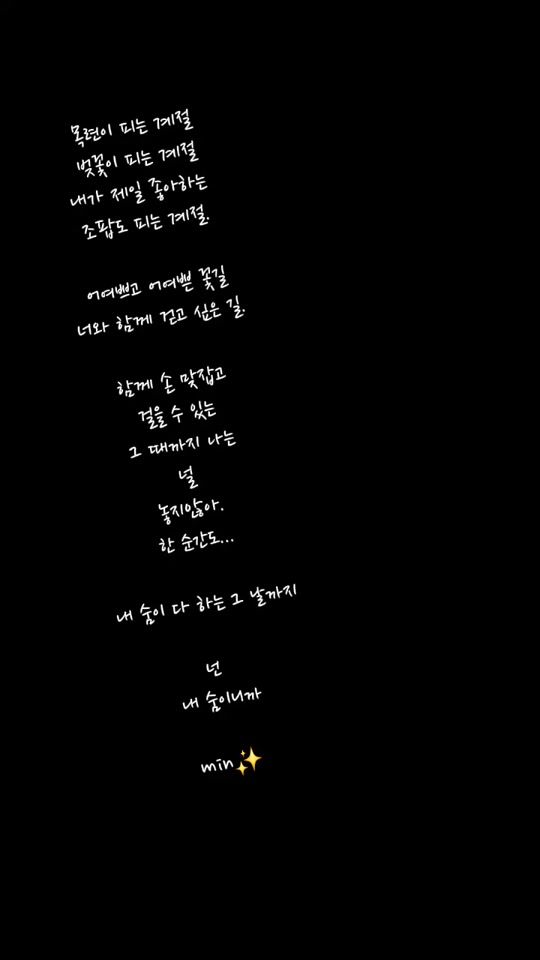 목련이 피는 계절
벚꽃이 피는 계절
내가 제일 좋아하는
조팝도 피는 계절.
어여쁘고 어여쁜 꽃길
너와 함께 걷고 싶은 길.
함께 손 맞잡고
걸을 수 있는
그 때까지 나는
널
놓지않아.
한 순간도...
내 숨이 다 하는 그 날까지
넌
내 숨이니까
min✨